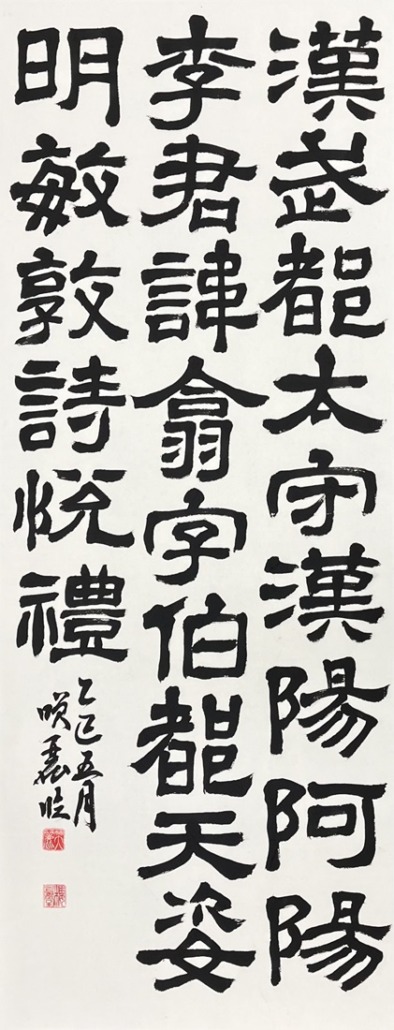 漢武都太守漢陽阿陽
李君諱翕字伯都天姿
明敏敦詩悅禮
乙巳五月
臨